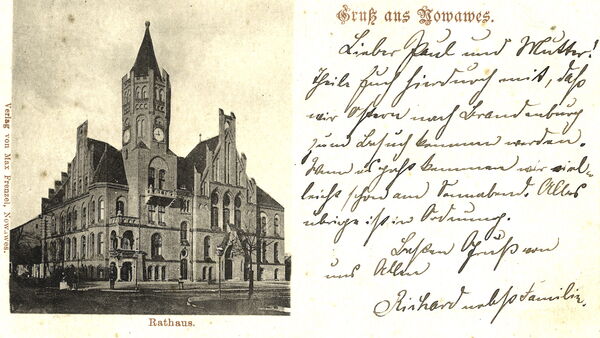 Gruß aus Nowawes.
Lieber Paul und Mutter!
Theile Euch hierdurch mit, daß
wir Ostern nach Brandenburg
zum Besuch kommen werden.
Wenn es paßt kommen wir viel-
leicht schon am Sonnabend. Alles
übrige ist in Ordnung.
Besten Gruß von
uns Allen
Richard nebst Familie.
Verlag von Max Frenzel, Nowawes.
Rathaus.